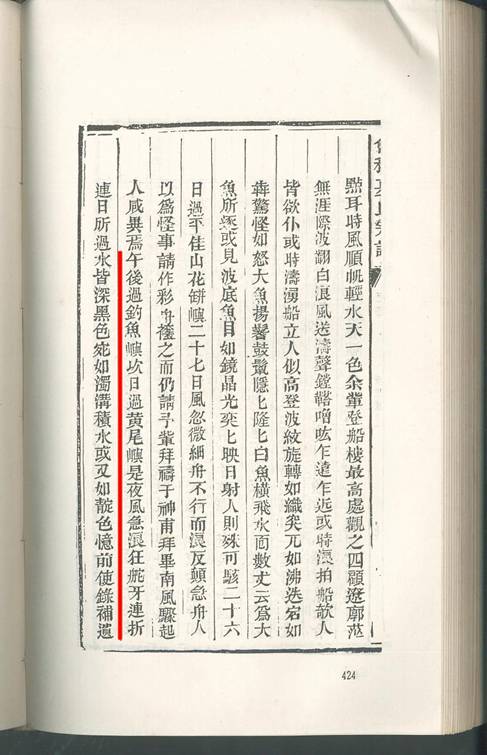 點耳時風順帆輕水天一色余輩登船樓最高處觀之四顧遼廓茫
無涯際波翻白浪風送濤聲鏜鞳噌吰乍遠乍近或時浪拍船欹人
皆欲仆或時濤湧船立人似高登波紋旋轉如織突兀如沸迭宕如
犇驚怪如怒大魚揚鬐鼓鬣隱匕隆匕白魚橫飛水面數丈云爲大
魚所逐或見波底魚目如鏡晶光奕匕映日射人則殊可駭二十六
日過平佳山花缾嶼二十七日風忽微細舟不行而浪反顛急舟人
以爲怪事請作彩舟禳之而仍請予輩拜禱于神甫拜畢南風驟起
人咸異焉午後過釣魚嶼次日過黃尾嶼是夜風急浪狂舵牙連折
連日所過水皆深黑色宛如濁溝積水或又如靛色憶前使錄補遺
424